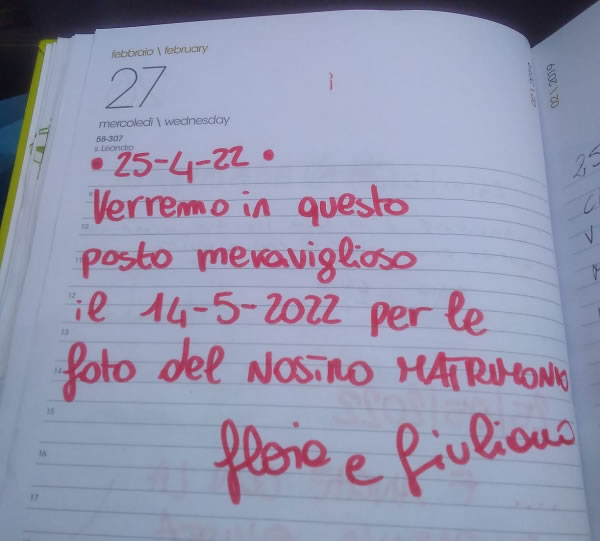 febbraio \ february
27
mercoledì \ wednesday
58-307
s. Leandro
• 25-4-22 •
Verremo in questo
posto meraviglioso
il 14-5-2022 per le
foto del NOSTRO MATRIMONIO
e Giuliano
9
10
11
12
13
14
15
16
17
02 \ 2019
25